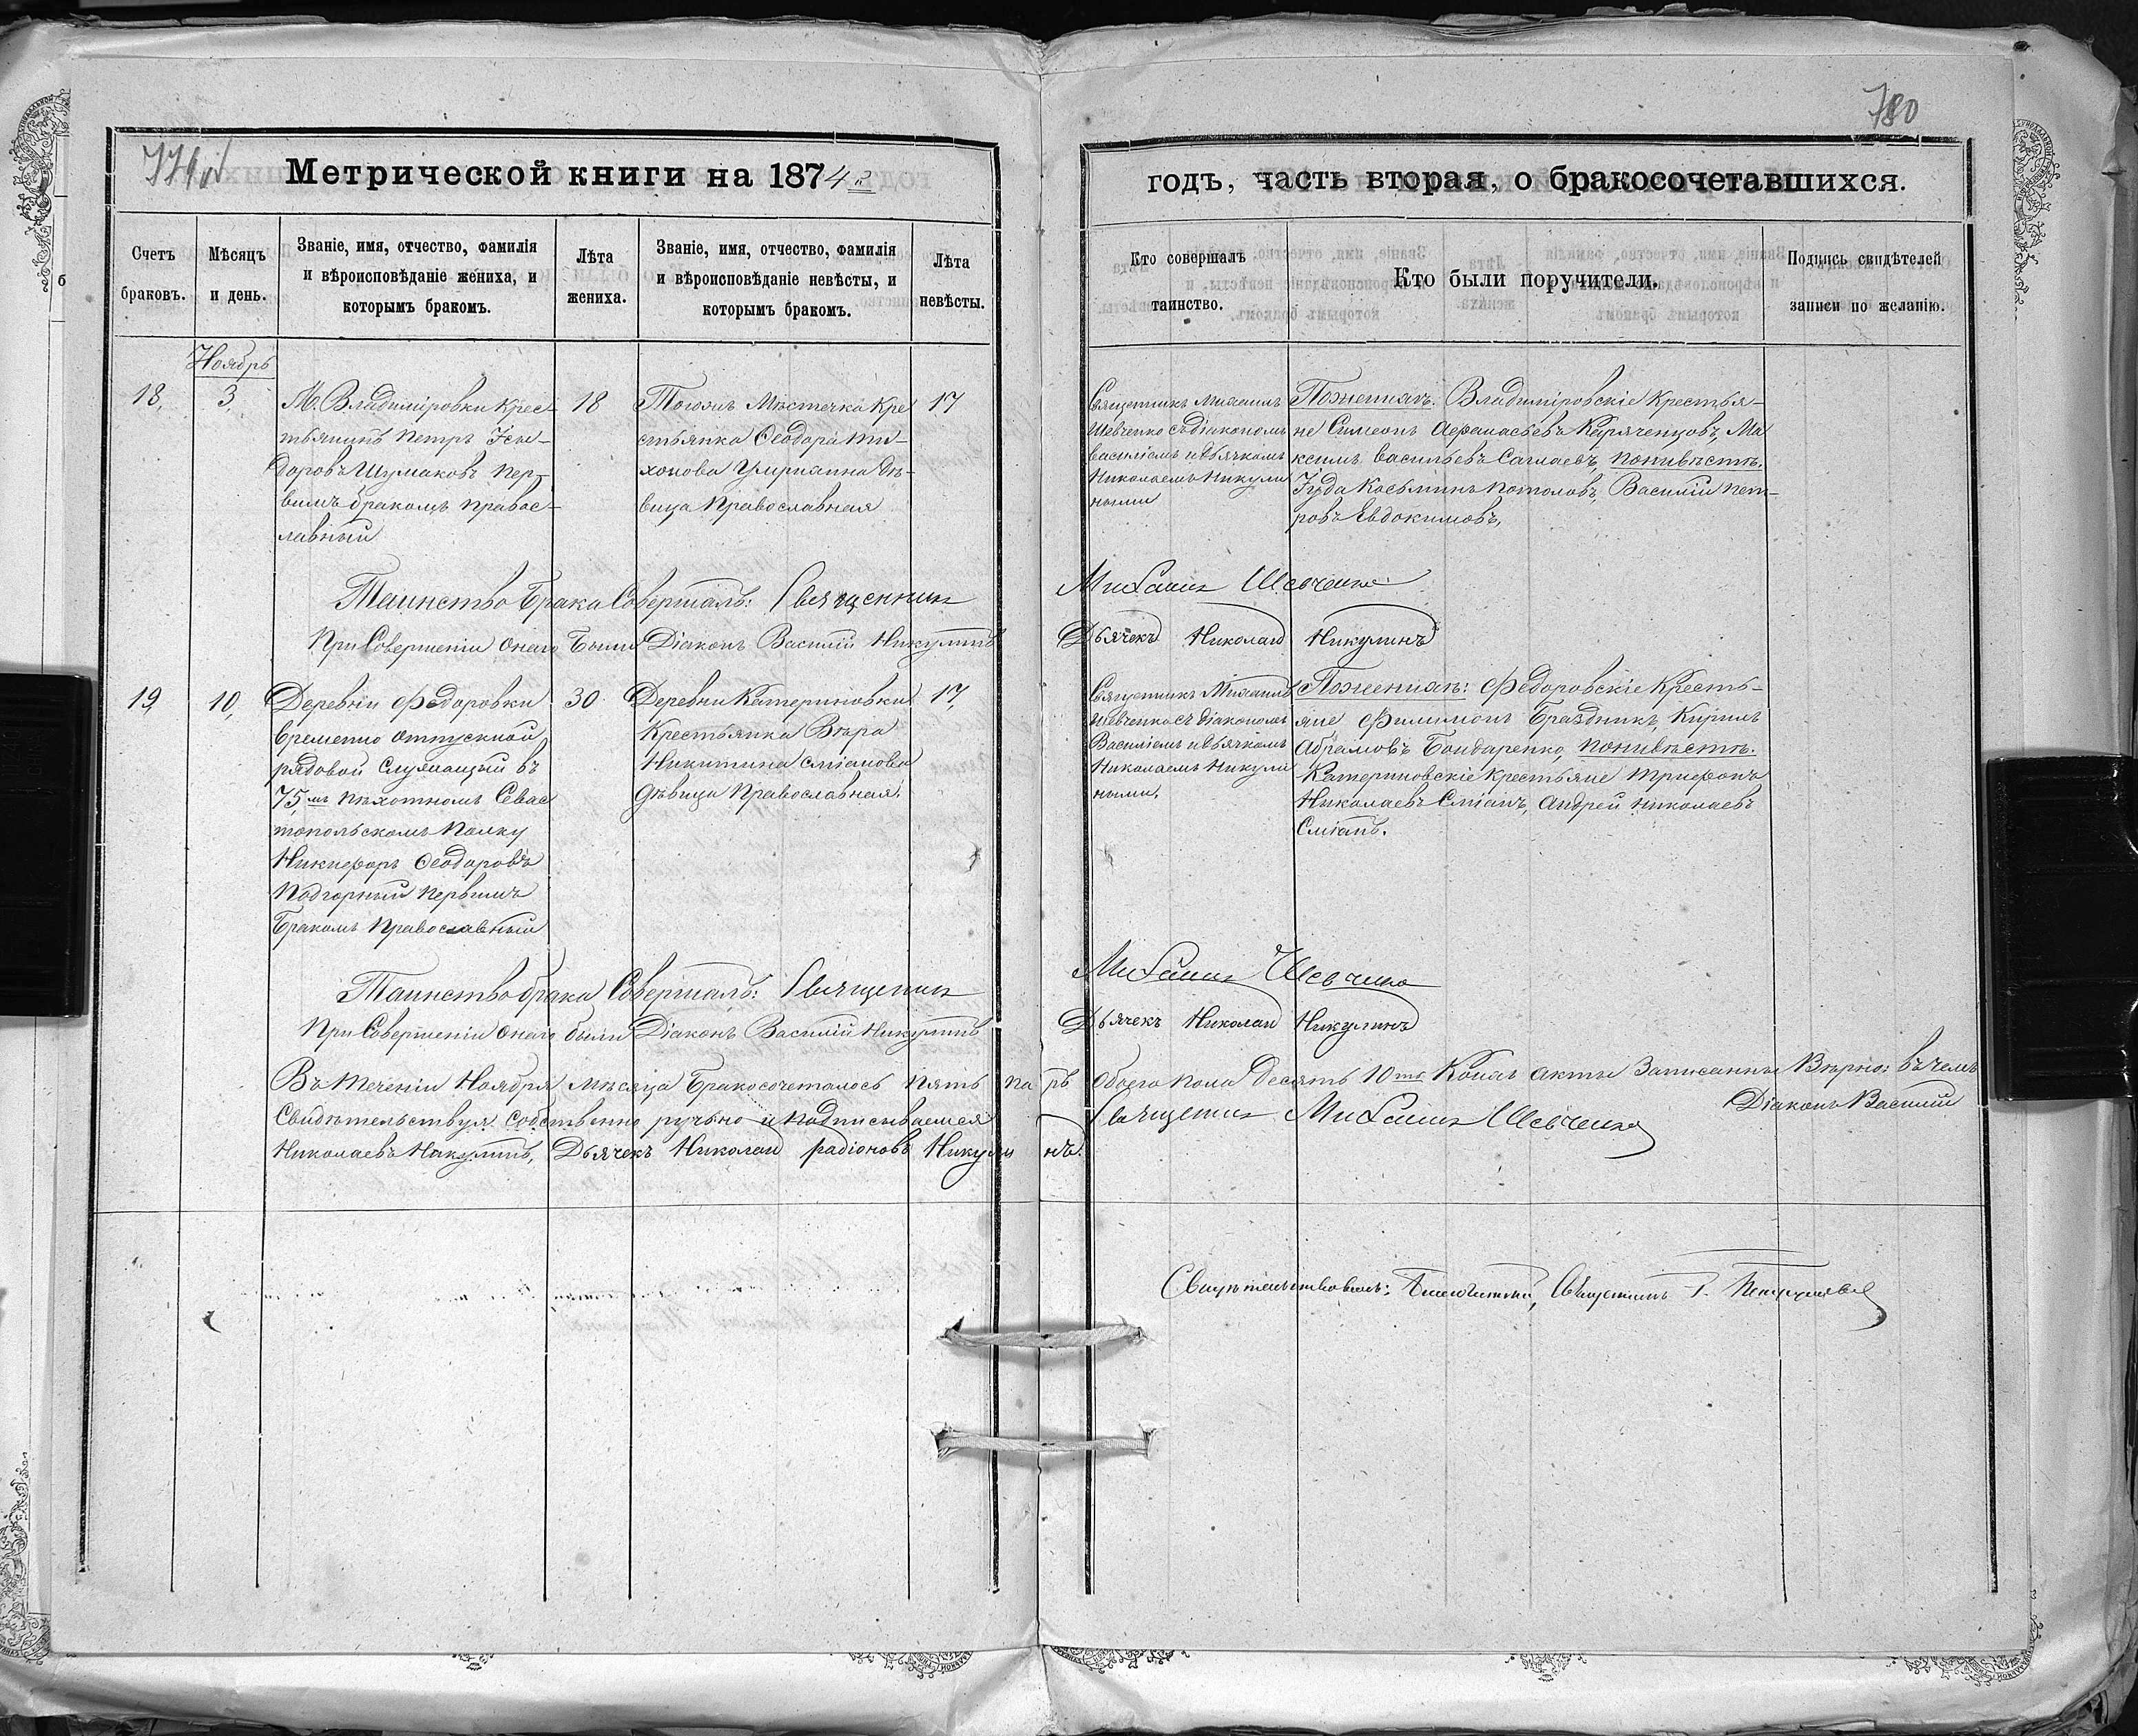 780
Метрической книги на 1874й
годъ, часть вторая, о бракосочетавшихся.
Счетъ
браковъ.
Мѣсяцъ
и день.
Званіе, имя, отчество, фамилія
и вѣроисповѣданіе жениха, и
которымъ бракомъ.
Лѣта
жениха.
Званіе, имя, отчество, фамилія
и вѣроисповѣданіе невѣсты, и
которымъ бракомъ.
Лѣта
невѣсты.
Кто совершалъ
таинство.
Кто были поручители.
Подпись свидѣтелей
записи по желанію.
Ноябрь
18,
3,
М. Владиміровки Крес-
тьянинъ Петръ Іси-
доровъ Шумаковъ пер-
вымъ бракомъ правос-
лавный
18
Тогожъ Мѣстечка Кре
стьянка Ѳеодора Ти-
хонова дѣ-
вица Православная
17
Священникъ Михаилъ
Шевченко съ діакономъ
Василіемъ и дьячкомъ
Николаемъ Никули
ными
Поженихѣ: Владиміровскіе Крестья-
не Симеонъ Аѳанасьевъ Ма
ксимъ Васильевъ поневѣстѣ.
Іуда Косьминъ Потоловъ, Василій Пет-
ровъ Евдокимовъ,
Таинство Брака Совершалъ: Священникъ
Михаилъ Шевченко
При Совершеніи онаго Были Діаконъ Василій Никулинъ
Дьячекъ Николай Никулинъ
19,
10,
Деревни Федоровки
временно отпускной
рядовой служащій въ
75мъ пѣхотномъ Севас
топольскомъ полку
Никифоръ Ѳеодоровъ
Подгорный первымъ
Бракомъ Православный
30
Деревни Катериновки
Крестьянка Вѣра
Никитина Сміанова
дѣвица Православная.
17,
Священникъ Михаилъ
Шевченко съ діакономъ
Василіемъ и дьячкомъ
Николаемъ Никули
ными,
Поженихѣ: Федоровскіе Кресть-
яне Филимонъ Браздникъ, Кирилъ
Абрамовъ Бондаренко, поневѣстѣ.
Катериновскіе крестьяне Трифонъ
Николаевъ Сміанъ, Андрей Николаевъ
Сміанъ.
Таинство брака Совершалъ: Священникъ
Михаилъ Шевченко
При Совершеніи онаго были Діаконъ Василій Никулинъ
Дьячекъ Николай Никулинъ
Въ теченіи Ноября мѣсяца Бракосочеталось пять паръ обоего пола десять 10ть Коихъ акты Записанны Вѣрно: въ чемъ
Свидѣтельствуя собственно ручьно и подписываемся Священникъ Михаилъ Шевченко Діаконъ Василій
Николаевъ Никулинъ, Дьячекъ Николай радіоновъ Никулинъ.
Свидѣтельствовалъ: Благочинный, Священникъ